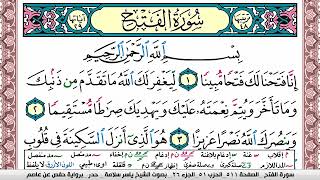 سُورَةُ الْفَتْحِ
بِسْمِ اللَّهِ الرَّحْمَٰنِ الرَّحِيمِ
إِنَّا فَتَحْنَا لَكَ فَتْحًا مُّبِينًا ١ لِّيَغْفِرَ لَكَ اللَّهُ مَا تَقَدَّمَ مِن ذَنبِكَ
وَمَا تَأَخَّرَ وَيُتِمَّ نِعْمَتَهُ عَلَيْكَ وَيَهْدِيَكَ صِرَاطًا مُّسْتَقِيمًا ٢
وَيَنصُرَكَ اللَّهُ نَصْرًا عَزِيزًا ٣ هُوَ الَّذِي أَنزَلَ السَّكِينَةَ فِي قُلُوبِ
سورة الفتح الصفحة ٥١١ الحزب ٥١ الجزء ٢٦ بصوت الشيخ ياسر سلامة حدر برواية حفص عن عاصم